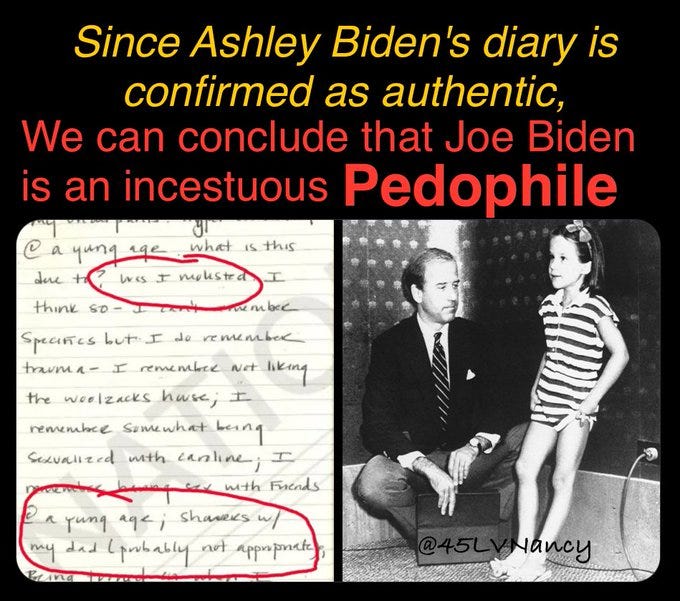 Since Ashley Biden's diary is
confirmed as authentic,
We can conclude that Joe Biden
is an incestuous Pedophile
@ a yung age. what is this
due to? Was I molested. I
think so - I can't remember
Specifics but I do remember
trauma - I remember not liking
the woolzacks house; I
remember somewhat being
sexualized with caroline; I
remember having sex with friends
@ a yung age; showers w/
my dad (probably not appropriate).
Being
NATIO
@45LVNancy